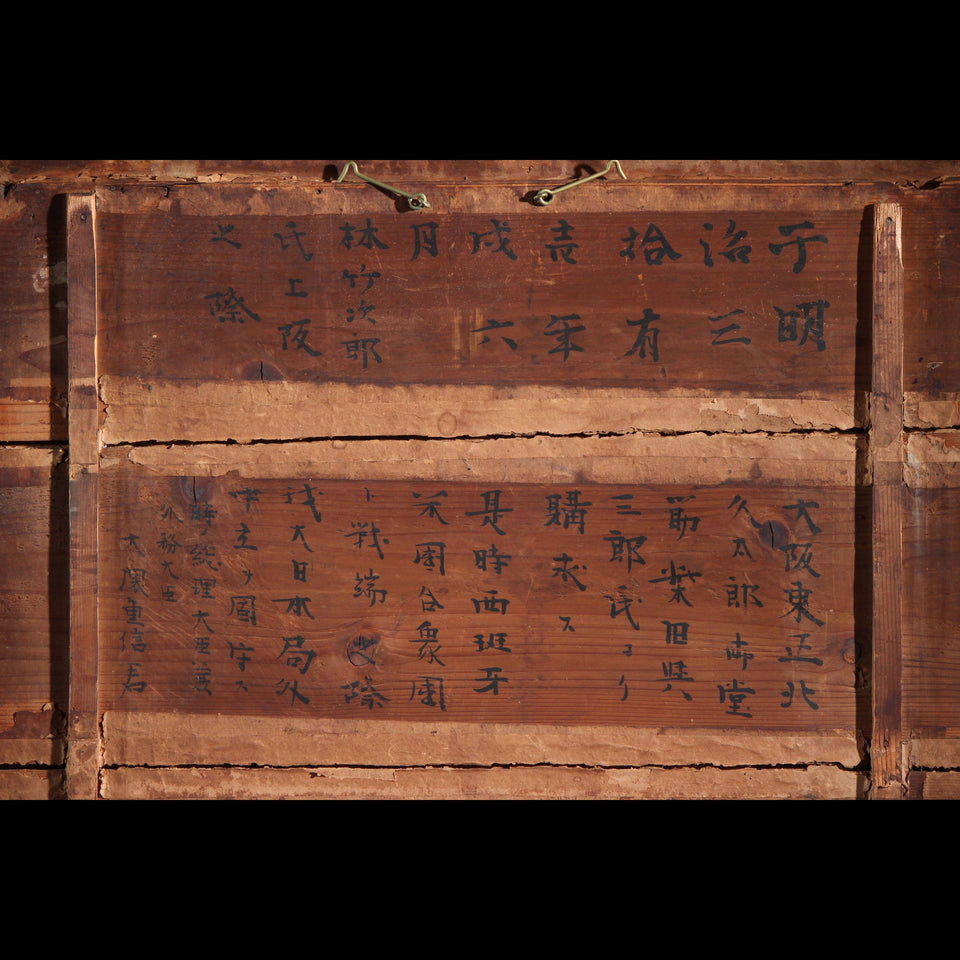 于明
治三
拾有
壱年
戌六
月
林竹次郎
氏上阪
之際
大阪東正北
久太郎御堂
筋柴田與
三郎氏ヨリ
購求ス
是時西班牙
米國合衆國
ト戦端際
我大日本局外
中立ヲ國守ス
時総理大臣兼
外務大臣
大隈重信君